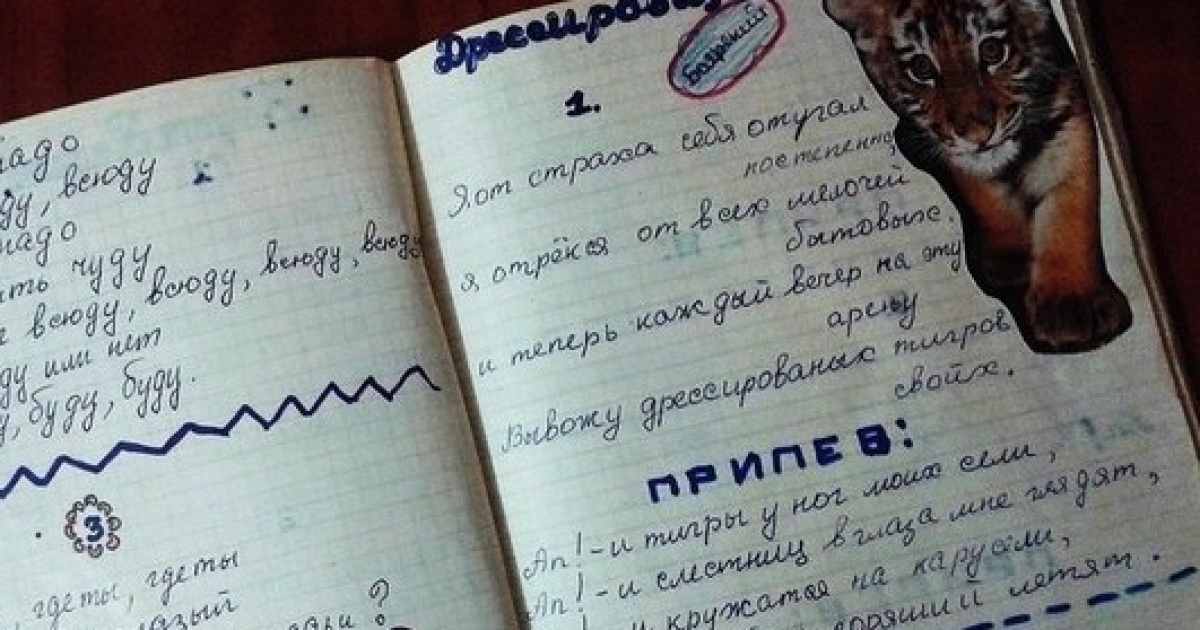 надо
ду, всюду
надо
ать чуду
всюду, всюду, всюду, всюду
ду или нет
у, буду, буду.
3
где ты, где ты
азый
?
Дрессировщ
Боярский
1.
Я от страха себя отугал
постепенно,
я, отрёкся от всех мелочей
бытовых.
и теперь каждый вечер на эту
арену
Вывожу дрессированых тигров
свойх.
ПРИПЕВ:
Ап! - и тигры у ног моих сели,
Ап! - и слестниц в глаза мне глядят,
! - и кружатся на карусели,
горящий летят.